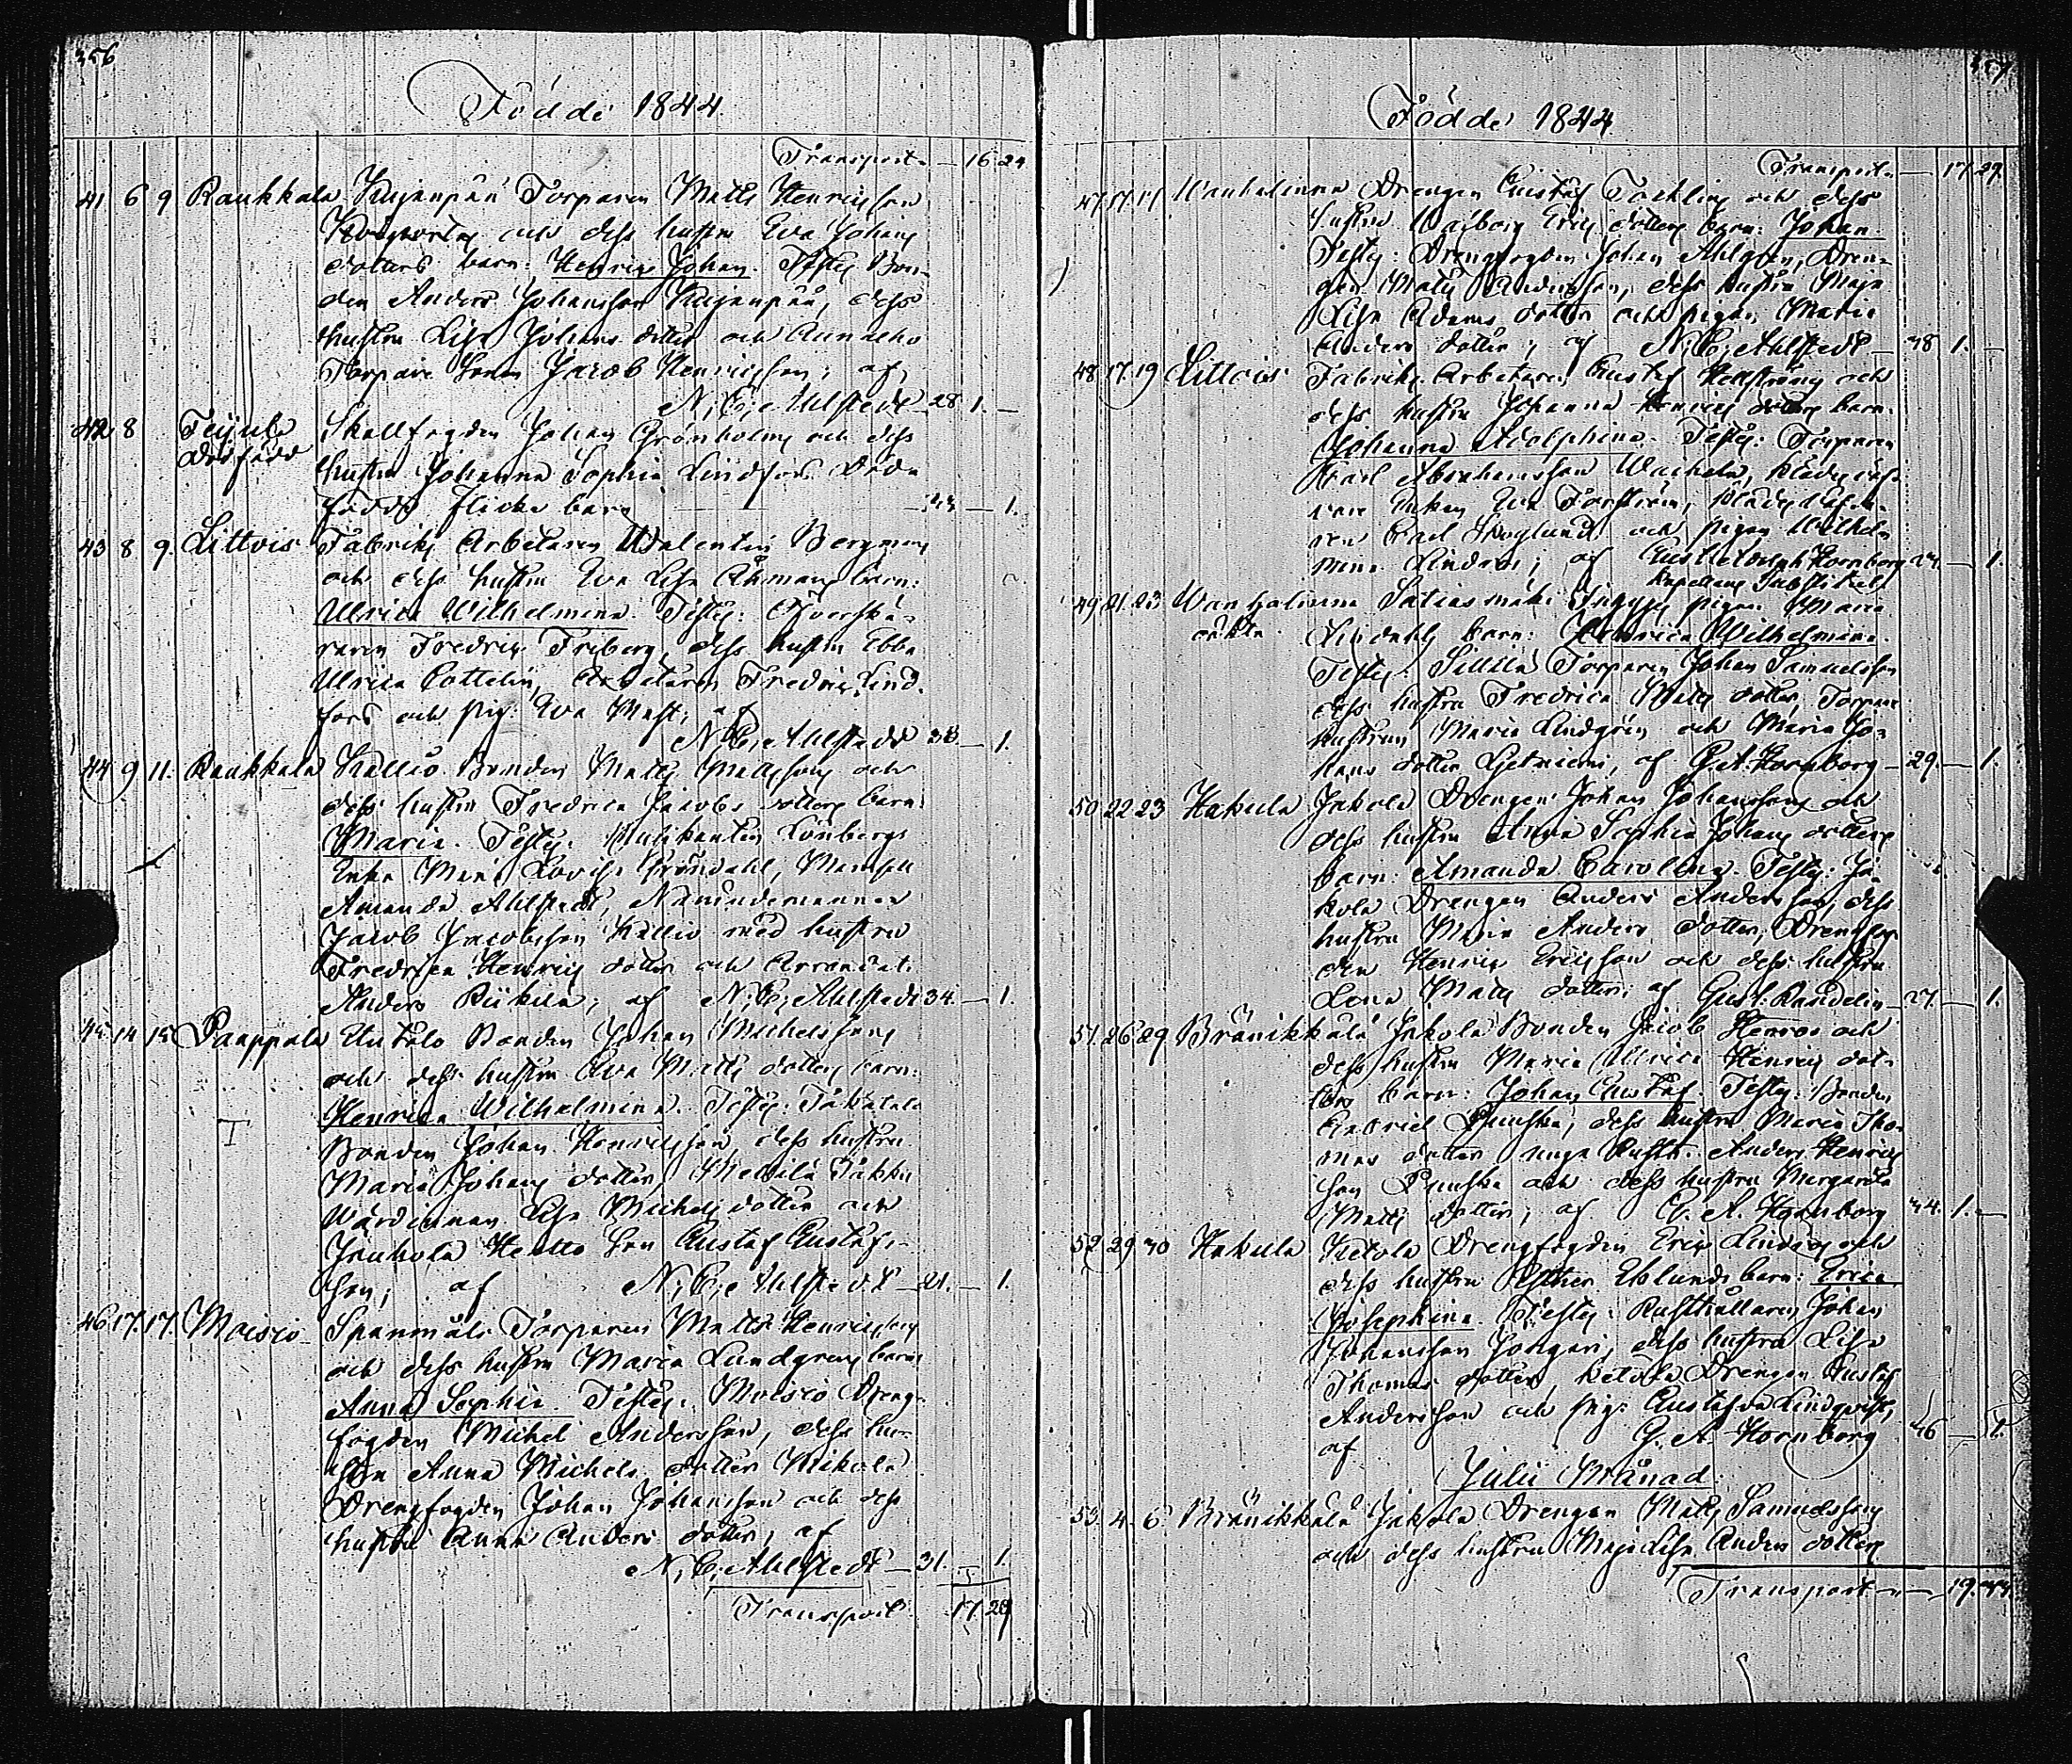 356
Födde 1844.
Transport — 16 24
41 6 9 Raukkala Kujanpää Torparen Matts Henricsson
och dess hustru Eva Johans
dotters barn: Henric Johan. Testes Bon-
den Anders Johansson Kujanpää, dess
hustru Lisa Johans dotter och
Torpare Sonen Jacob Henricsson; af
N. C. Ahlstedt 28. 1. —
42 8 Teijula Skallfogden Johan Grönholms och dess
dödfödd hustru Johanna Sophia Lindfors Död-
födt flicke barn — 1.
43 8 9. Littois Fabriks Arbetaren Walentin Bergmans
och dess hustru Eva Lisa Åhmans barn:
Ulrica Wilhelmina. Testes: Öfverskä-
raren Fredric Friberg, dess hustru Ebba
Ulrica Cottelin, Arbetaren Fredric Lind-
fors och pig. Eva Mast; af
N. C. Ahlstedt 38. — 1.
44 9 11. Raukkala Kallio Bonden Matts Mattssons och
dess hustru Fredrica Jacobs dotters barn:
Maria. Testes: Musikanten Lönbergs
Enka Maria Lovisa Gröndahl, Mamsell
Amanda Ahlstedt, Nämndemannen
Jacob Jacobsson Kallio med hustru
Fredrica Henrics dotter och Arrendat.
Anders Riikila; af N. C. Ahlstedt 34. — 1.
45 14 15 Paappala Untolo Bonden Johan Michelssons
och dess hustru Eva Matts dotters barn:
Henrica Wilhelmina. Testes:
Bonden Johan Henricsson dess hustru
Maria Johans dotter,
Wärdinnan Lisa Michels dotter och
son Gustaf Gustafs-
son; af N. C. Ahlstedt — 21. — 1.
46 17. 17. Moisio Torparen Matts Henricssons
och dess hustru Maria Lundgrens barn:
Anna Sophia. Testes: Moisio Dreng-
fogden Michel Andersson, dess hu-
stru Anna Michels dotter
Drengfogden Johan Johansson och dess
hustru Anna Anders dotter; af
N. C. Ahlstedt — 31. — 1.
Transport 17 29
357
Födde 1844.
Transport — 17. 29.
47 17 17 Wanhalinna Drengen Gustaf Tackling och dess
hustru Walborg Erics dotters barn: Johan.
Testes: Drengfogden Johan Ahlgren, Dren-
gen Matts Andersson, dess hustru Maja
Lisa Adams dotter och pigan Maria
Anders dotter; af N. C. Ahlstedt — 38 1. —
48 17. 19 Littois Fabriks Arbetaren Gustaf Hellströms och
dess hustru Johanna Henrics dotters barn.
Johanna Adolphina. Testes: Torparen
Carl Abrahamsson Waihela, Klädesväf-
vare Enkan Eva Forsström, Klädes Väfva-
ren Carl Skoglund och pigan Wilhel-
mina Lindros; af Gust. Adolph Hornborg — 1.
Kapellans Substitut
49 21. 23 Wanhalinna pigan Maria
oäkta Lindahls barn: Wilhelmina.
Testes: Sillilä Torparen Johan Samuelsson
dess hustru Fredrica Matts dotter, Torpare
hustrun Maria Lindgrén och Maria Jo-
hans dotter; af G. A. Hornborg — 29. — 1.
50 22 23 Hakula Jakola Drengen Johan Johanssons och
dess hustru Anna Sophia Johans dotters
barn: Amanda Carolina. Testes: Ja-
kola Drengen Anders Andersson, dess
hustru Maria Anders dotter, Drengfog-
den Henric Ericsson och dess hustru
Lena Matts dotter; af Gust. Randelin — 27. — 1.
51. 26. 29 Bränikkälä Jakola Bonden Jacob Henrics och
dess hustru Maria Ulrica Henrics dot-
ters barn: Johan Gustaf. Testes: Bonden
Gabriel Punska, dess hustru Maria Tho-
mas dotter unga Rusth. Anders Henrics
son Punska och dess hustru Margareta
Matts dotter; af G. A. Hornborg 44. 1. —
52 29 30 Hakula Ketola Drengfogden Eric Lindros och
dess hustru Esther Eklunds barn: Erica
Josephina. Testes: Rusthållaren Johan
Johansson Jongari, dess hustru Lisa
Thomas dotter, Ketola Drengen Gustaf
Andersson och pig: Gustafva Lindqvist;
af G. A. Hornborg 46 — 1.
Julii Månad.
53. 4. 6. Bränikkälä Jakola Drengen Matts Samuelssons
och dess hustru Maja Lisa Anders dotters
Transport — 19. 44.